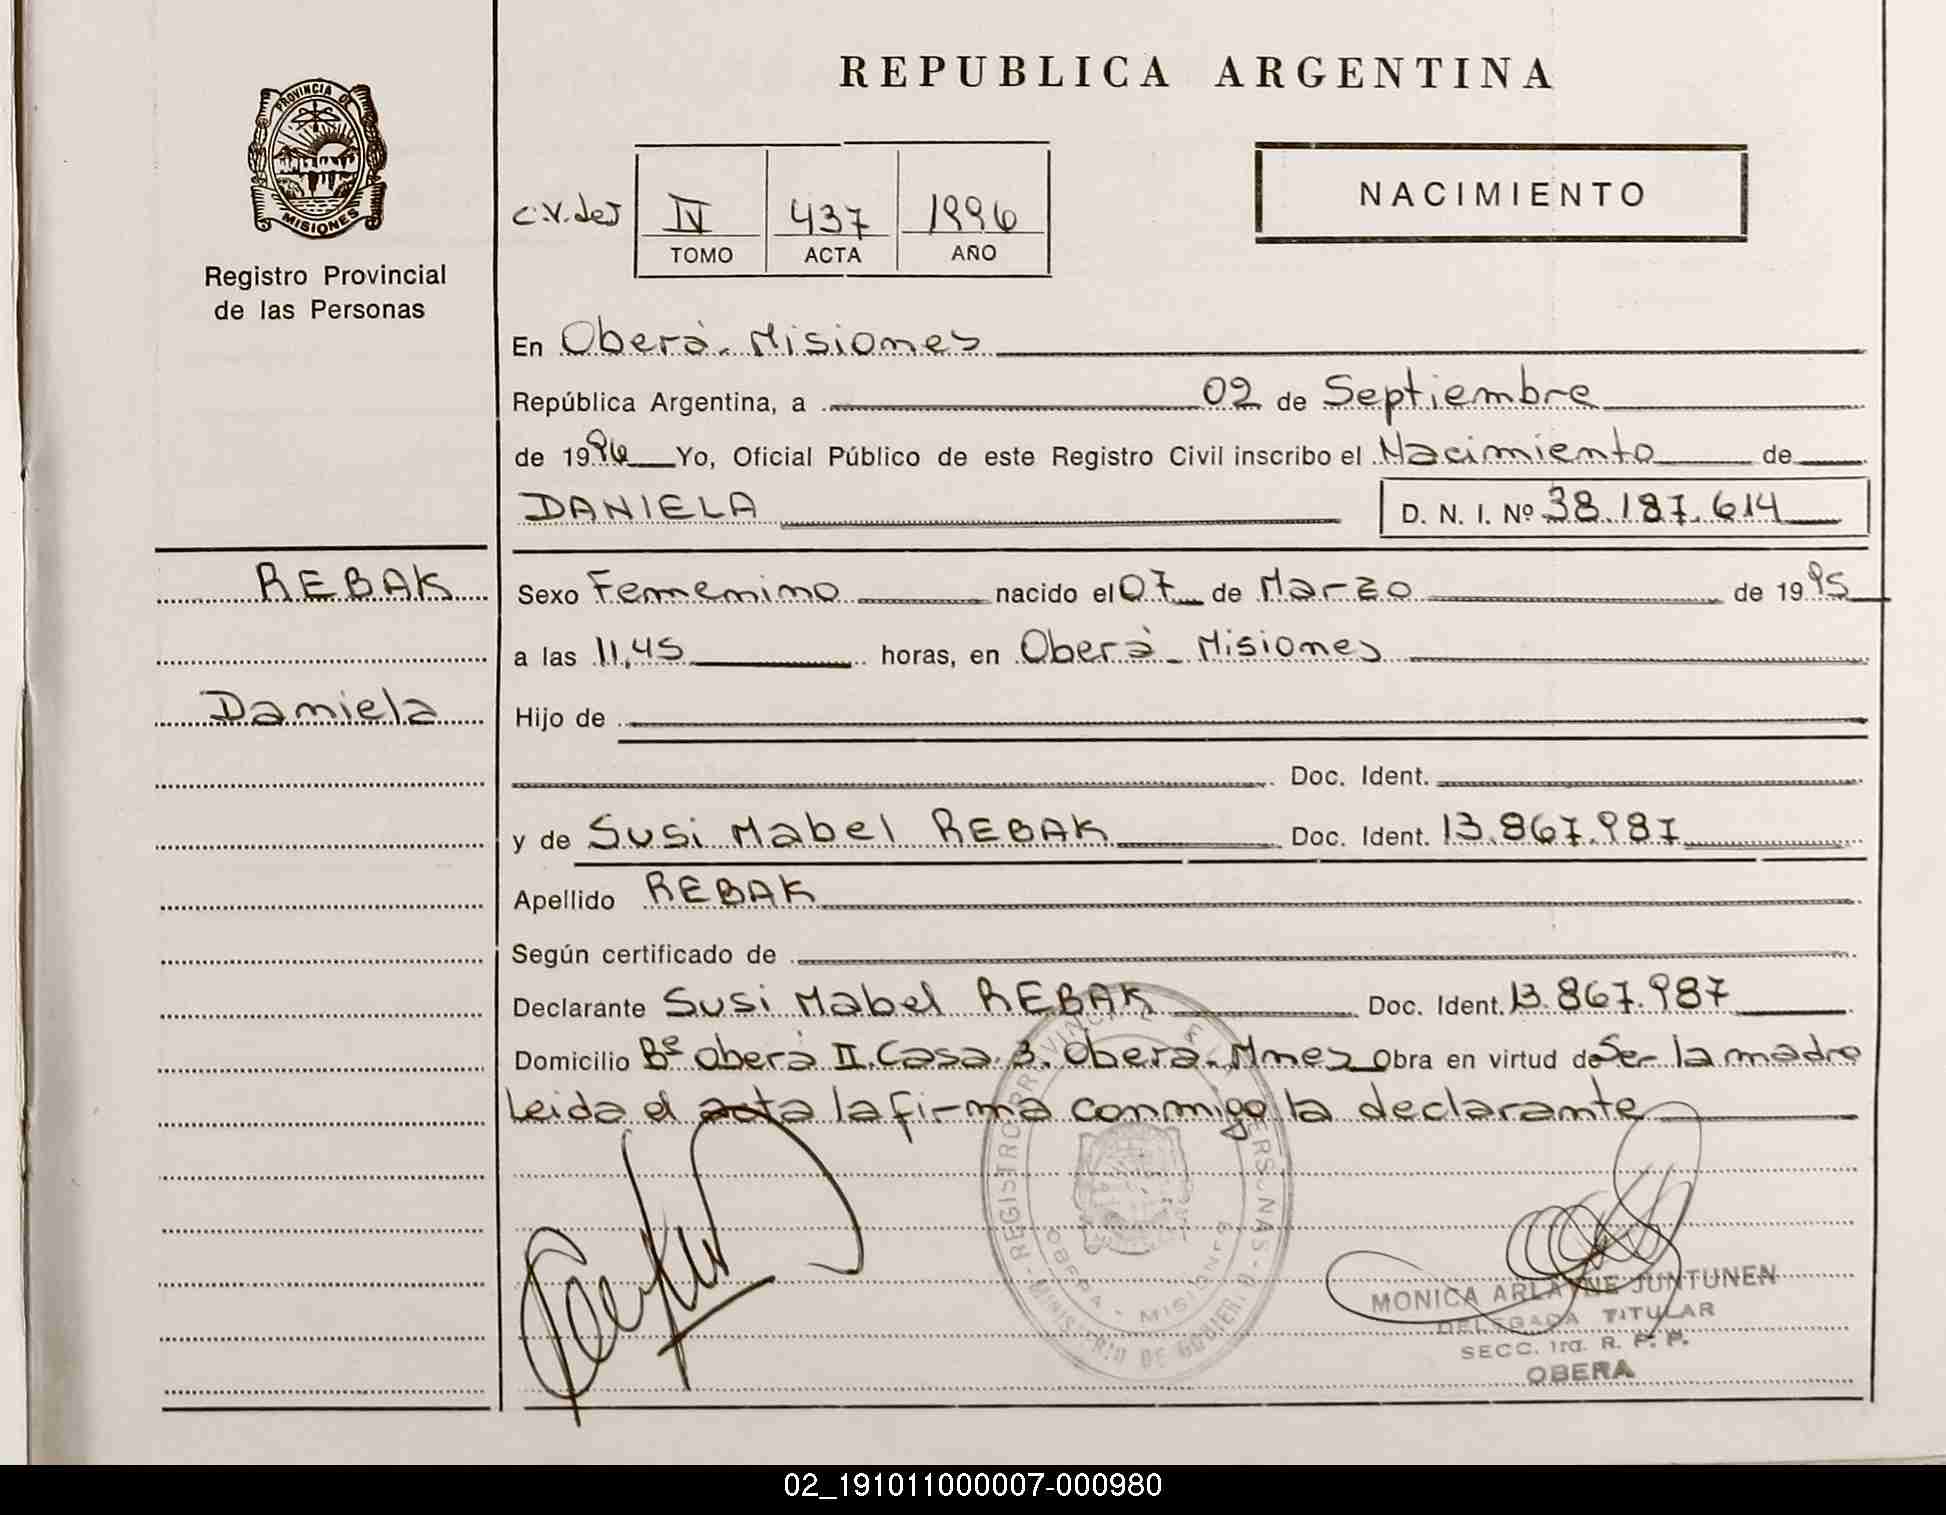 REPUBLICA ARGENTINA
PROVINCIA DE
MISIONES
Registro Provincial
de las Personas
C.V.deJ
IV 437 1996
TOMO ACTA AÑO
NACIMIENTO
En Oberá. Misiones
República Argentina, a 02 de Septiembre
de 1996 Yo, Oficial Público de este Registro Civil inscribo el Nacimiento de
DANIELA D. N. I. Nº 38.187.614
REBAK
Sexo Femenino nacido el 07 de Marzo de 1995
a las 11,45 horas, en Oberá - Misiones
Daniela
Hijo de
Doc. Ident.
y de Susi Mabel REBAK Doc. Ident. 13.867.987
Apellido REBAK
Según certificado de
Declarante Susi Mabel REBAK Doc. Ident. 13.867.987
Domicilio Bº Oberá II. Casa. 3. Oberá. Mnes Obra en virtud de Ser la madre
Leida el acta la firma conmigo la declarante
REGISTRO PROVINCIAL DE LAS PERSONAS
OBERA - MISIONES
MINISTERIO DE GOBIERNO
MONICA ARLAINE JUNTUNEN
DELEGADA TITULAR
SECC. 1ra. R. P. P.
OBERA
02_191011000007-000980